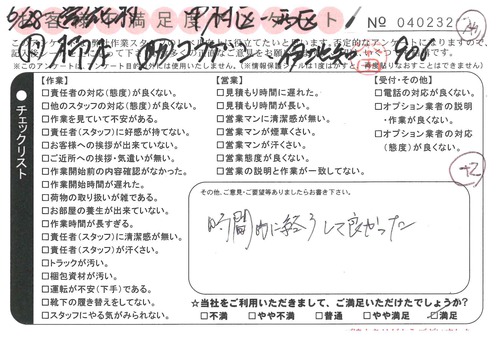 No 040232
チェックリスト
【作業】
□責任者の対応(態度)が良くない。
□他のスタッフの対応(態度)が良くない。
□作業を見ていて不安がある。
□責任者(スタッフ)に好感が持てない。
□お客様への挨拶が出来ていない。
□ご近所への挨拶・気遣いが無い。
□作業開始前の内容確認がなかった。
□作業開始時間が遅れた。
□荷物の取り扱いが雑である。
□お部屋の養生が出来ていない。
□作業時間が長すぎる。
□責任者(スタッフ)に清潔感が無い。
□責任者(スタッフ)が汗くさい。
□トラックが汚い。
□梱包資材が汚い。
□運転が不安(下手)である。
□靴下の履き替えをしてない。
□スタッフにやる気がみられない。
【営業】
□見積もり時間に遅れた。
□見積もり時間が長い。
□営業マンに清潔感が無い。
□営業マンが煙草くさい。
□営業マンが汗くさい。
□営業態度が良くない。
□営業の説明と作業が一致してない。
【受付・その他】
□電話の対応が良くない。
□オプション業者の説明
・作業が良くない。
□オプション業者の対応
(態度)が良くない。
+2
その他、ご意見・ご要望等ありましたらお書き下さい。
時間内に終了して良かった
☆当社をご利用いただきまして、ご満足いただけたでしょうか?
□不満 □やや不満 □普通 □やや満足 ☑満足